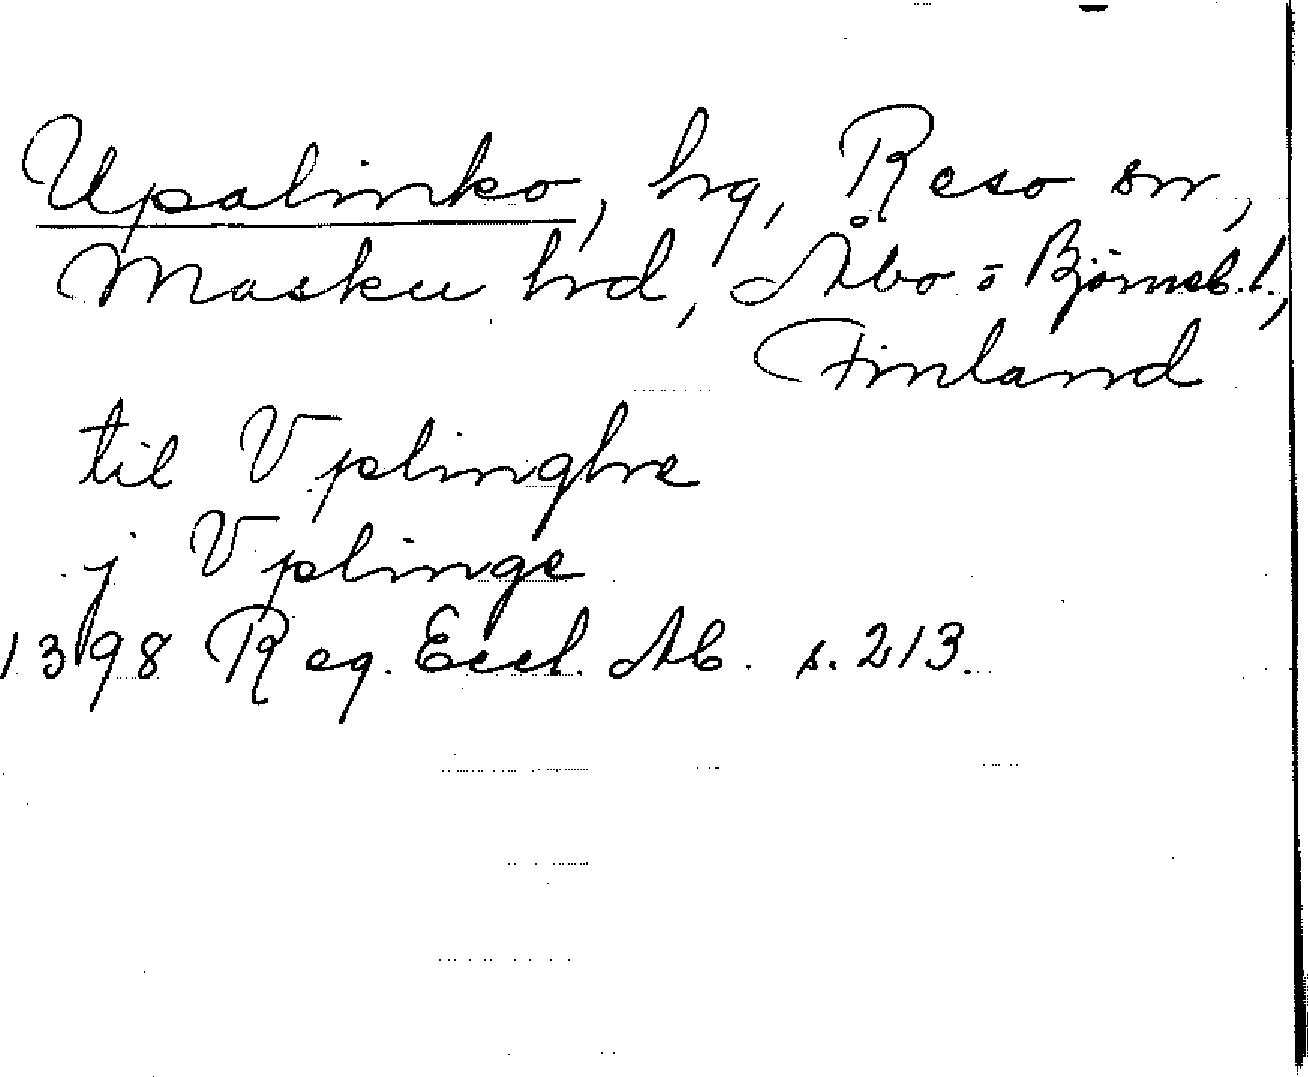 Upalinko, hg, Reso sn,
Masku hrd, Åbo = Björneb. l.,
Finland
til Vplinghe
j Vplinge
1398 Reg. Eccl. Ab. s. 213.